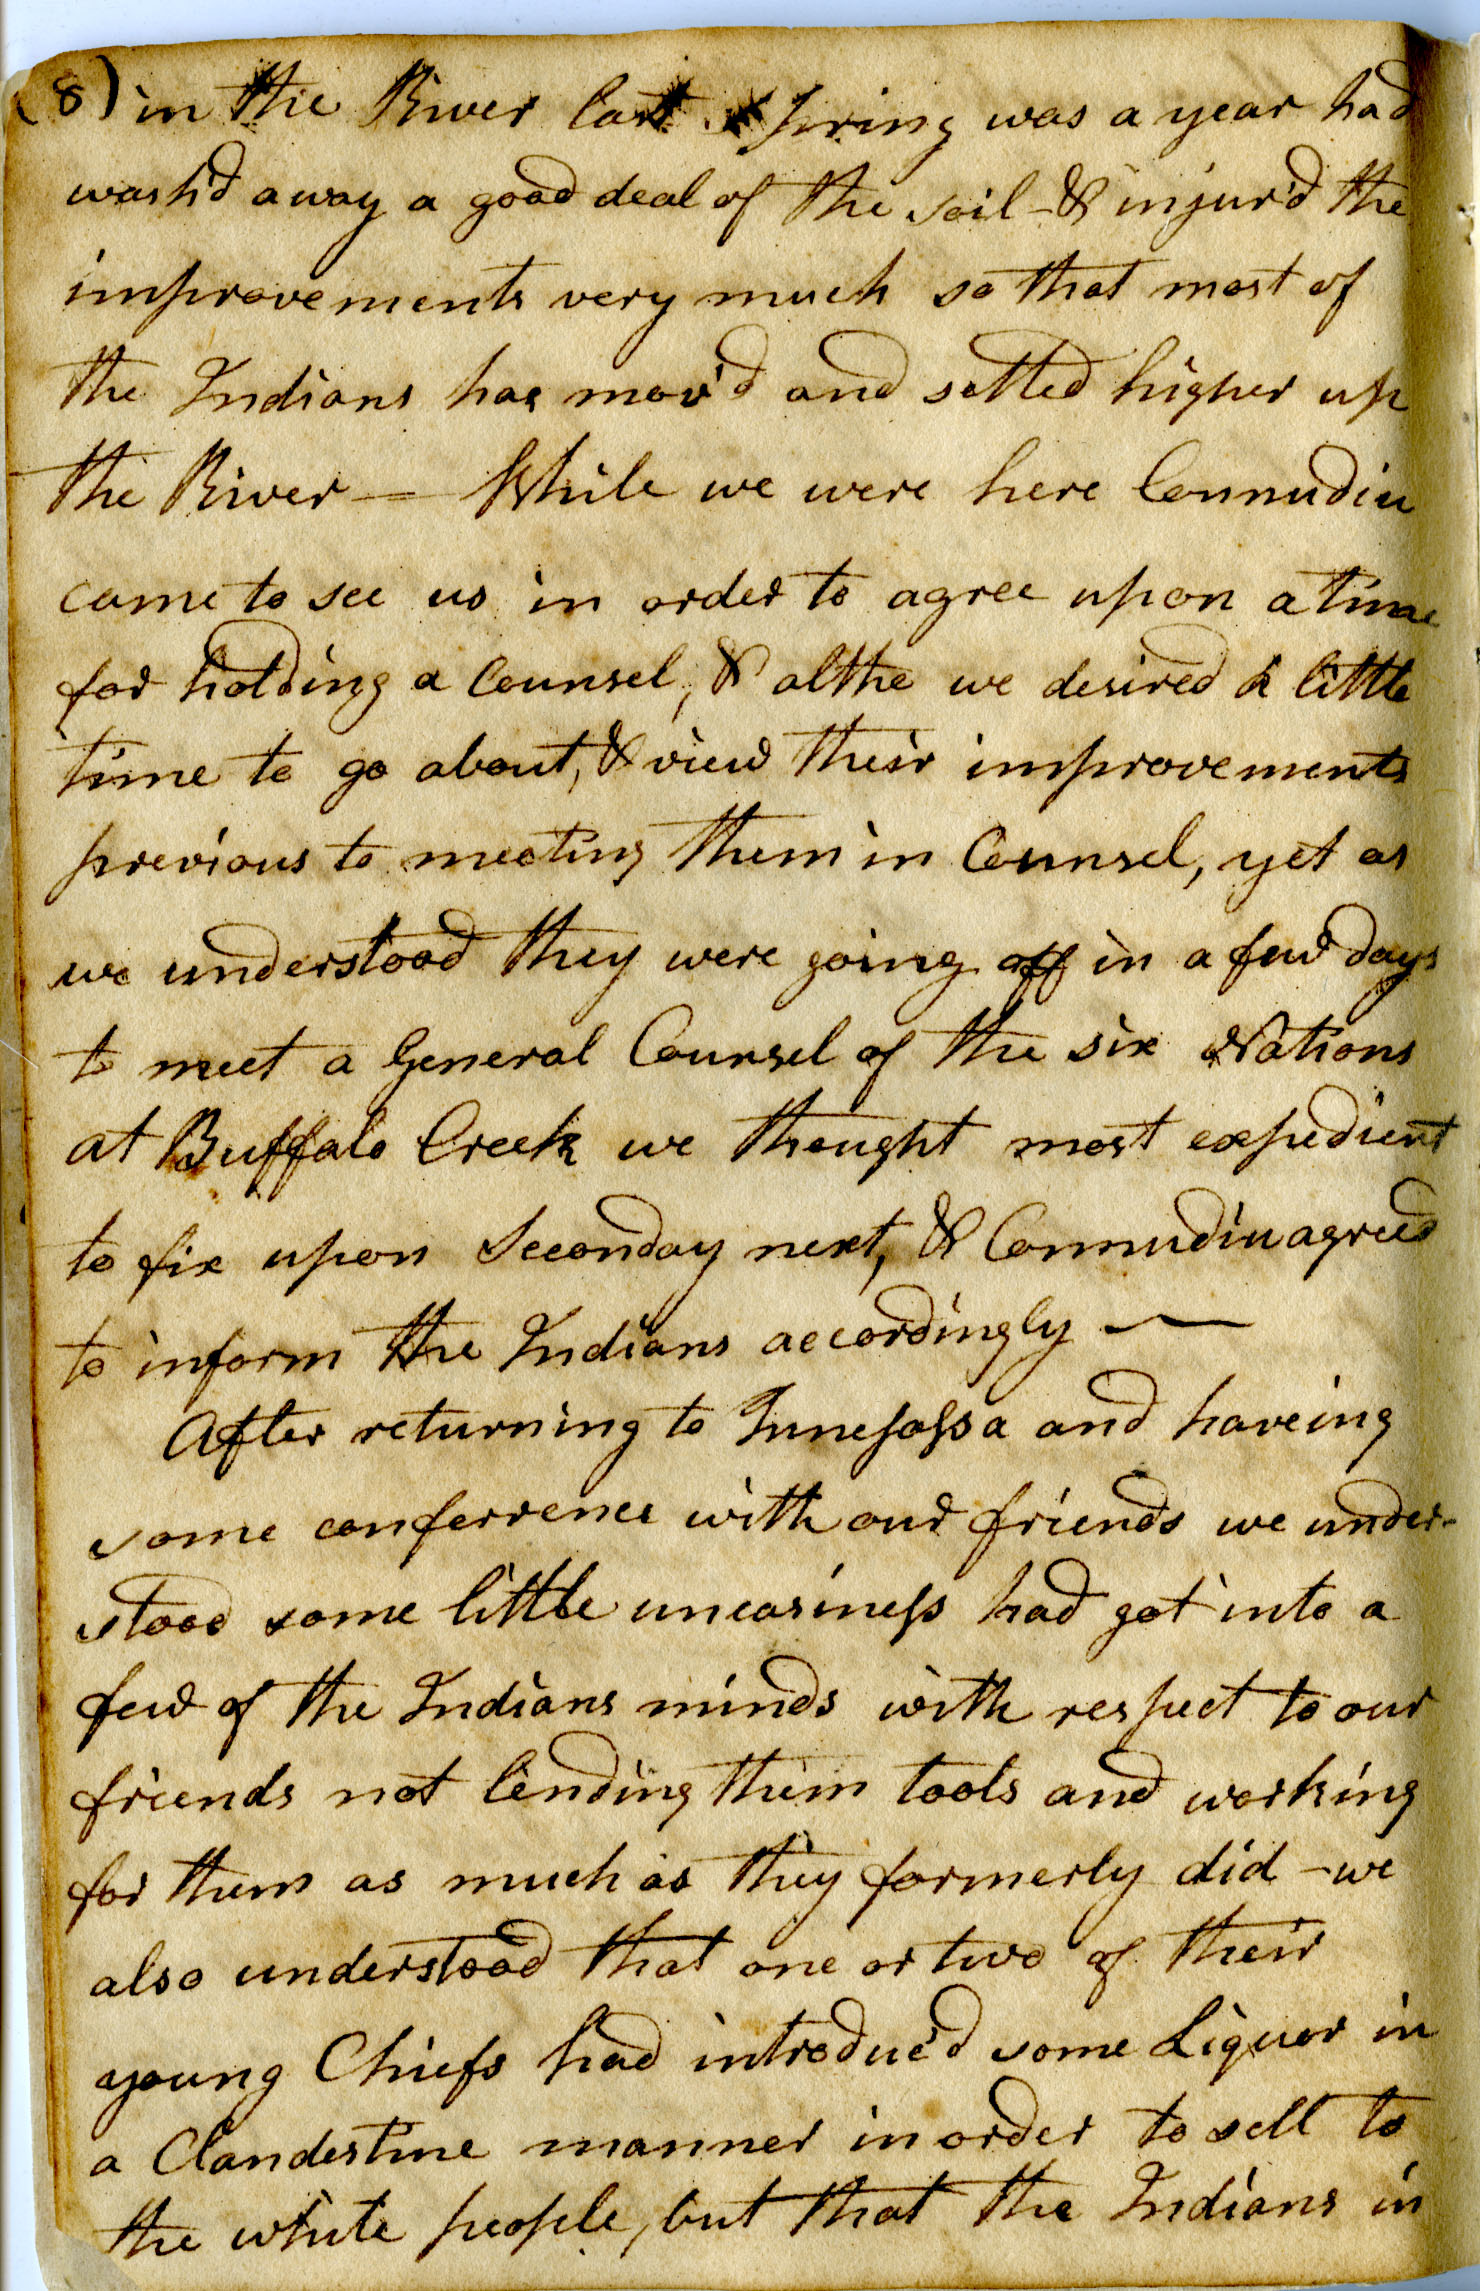 (8) in the River last Spring was a year had
wash'd away a good deal of the soil - & injur'd the
improvements very much so that most of
the Indians has mov'd and setled higher up
the River — While we were here Connudiu
came to see us in order to agree upon a time
for holding a Counsel, & altho we desired a little
time to go about, & view their improvements
previous to meeting them in Counsel, yet as
we understood they were going off in a few days
to meet a General Counsel of the six Nations
at Buffalo Creek we thought most expedient
to fix upon Seconday next, & Connudiu agreed
to inform the Indians accordingly —
After returning to Tunesassa and haveing
some conferrence with our friends we under-
stood some little uneasiness had got into a
few of the Indians minds with respect to our
friends not lending them tools and working
for them as much as they formerly did - we
also understood that one or two of their
young Chiefs had introduc'd some Liquor in
a Clandestine manner in order to sell to
the white people, but that the Indians in